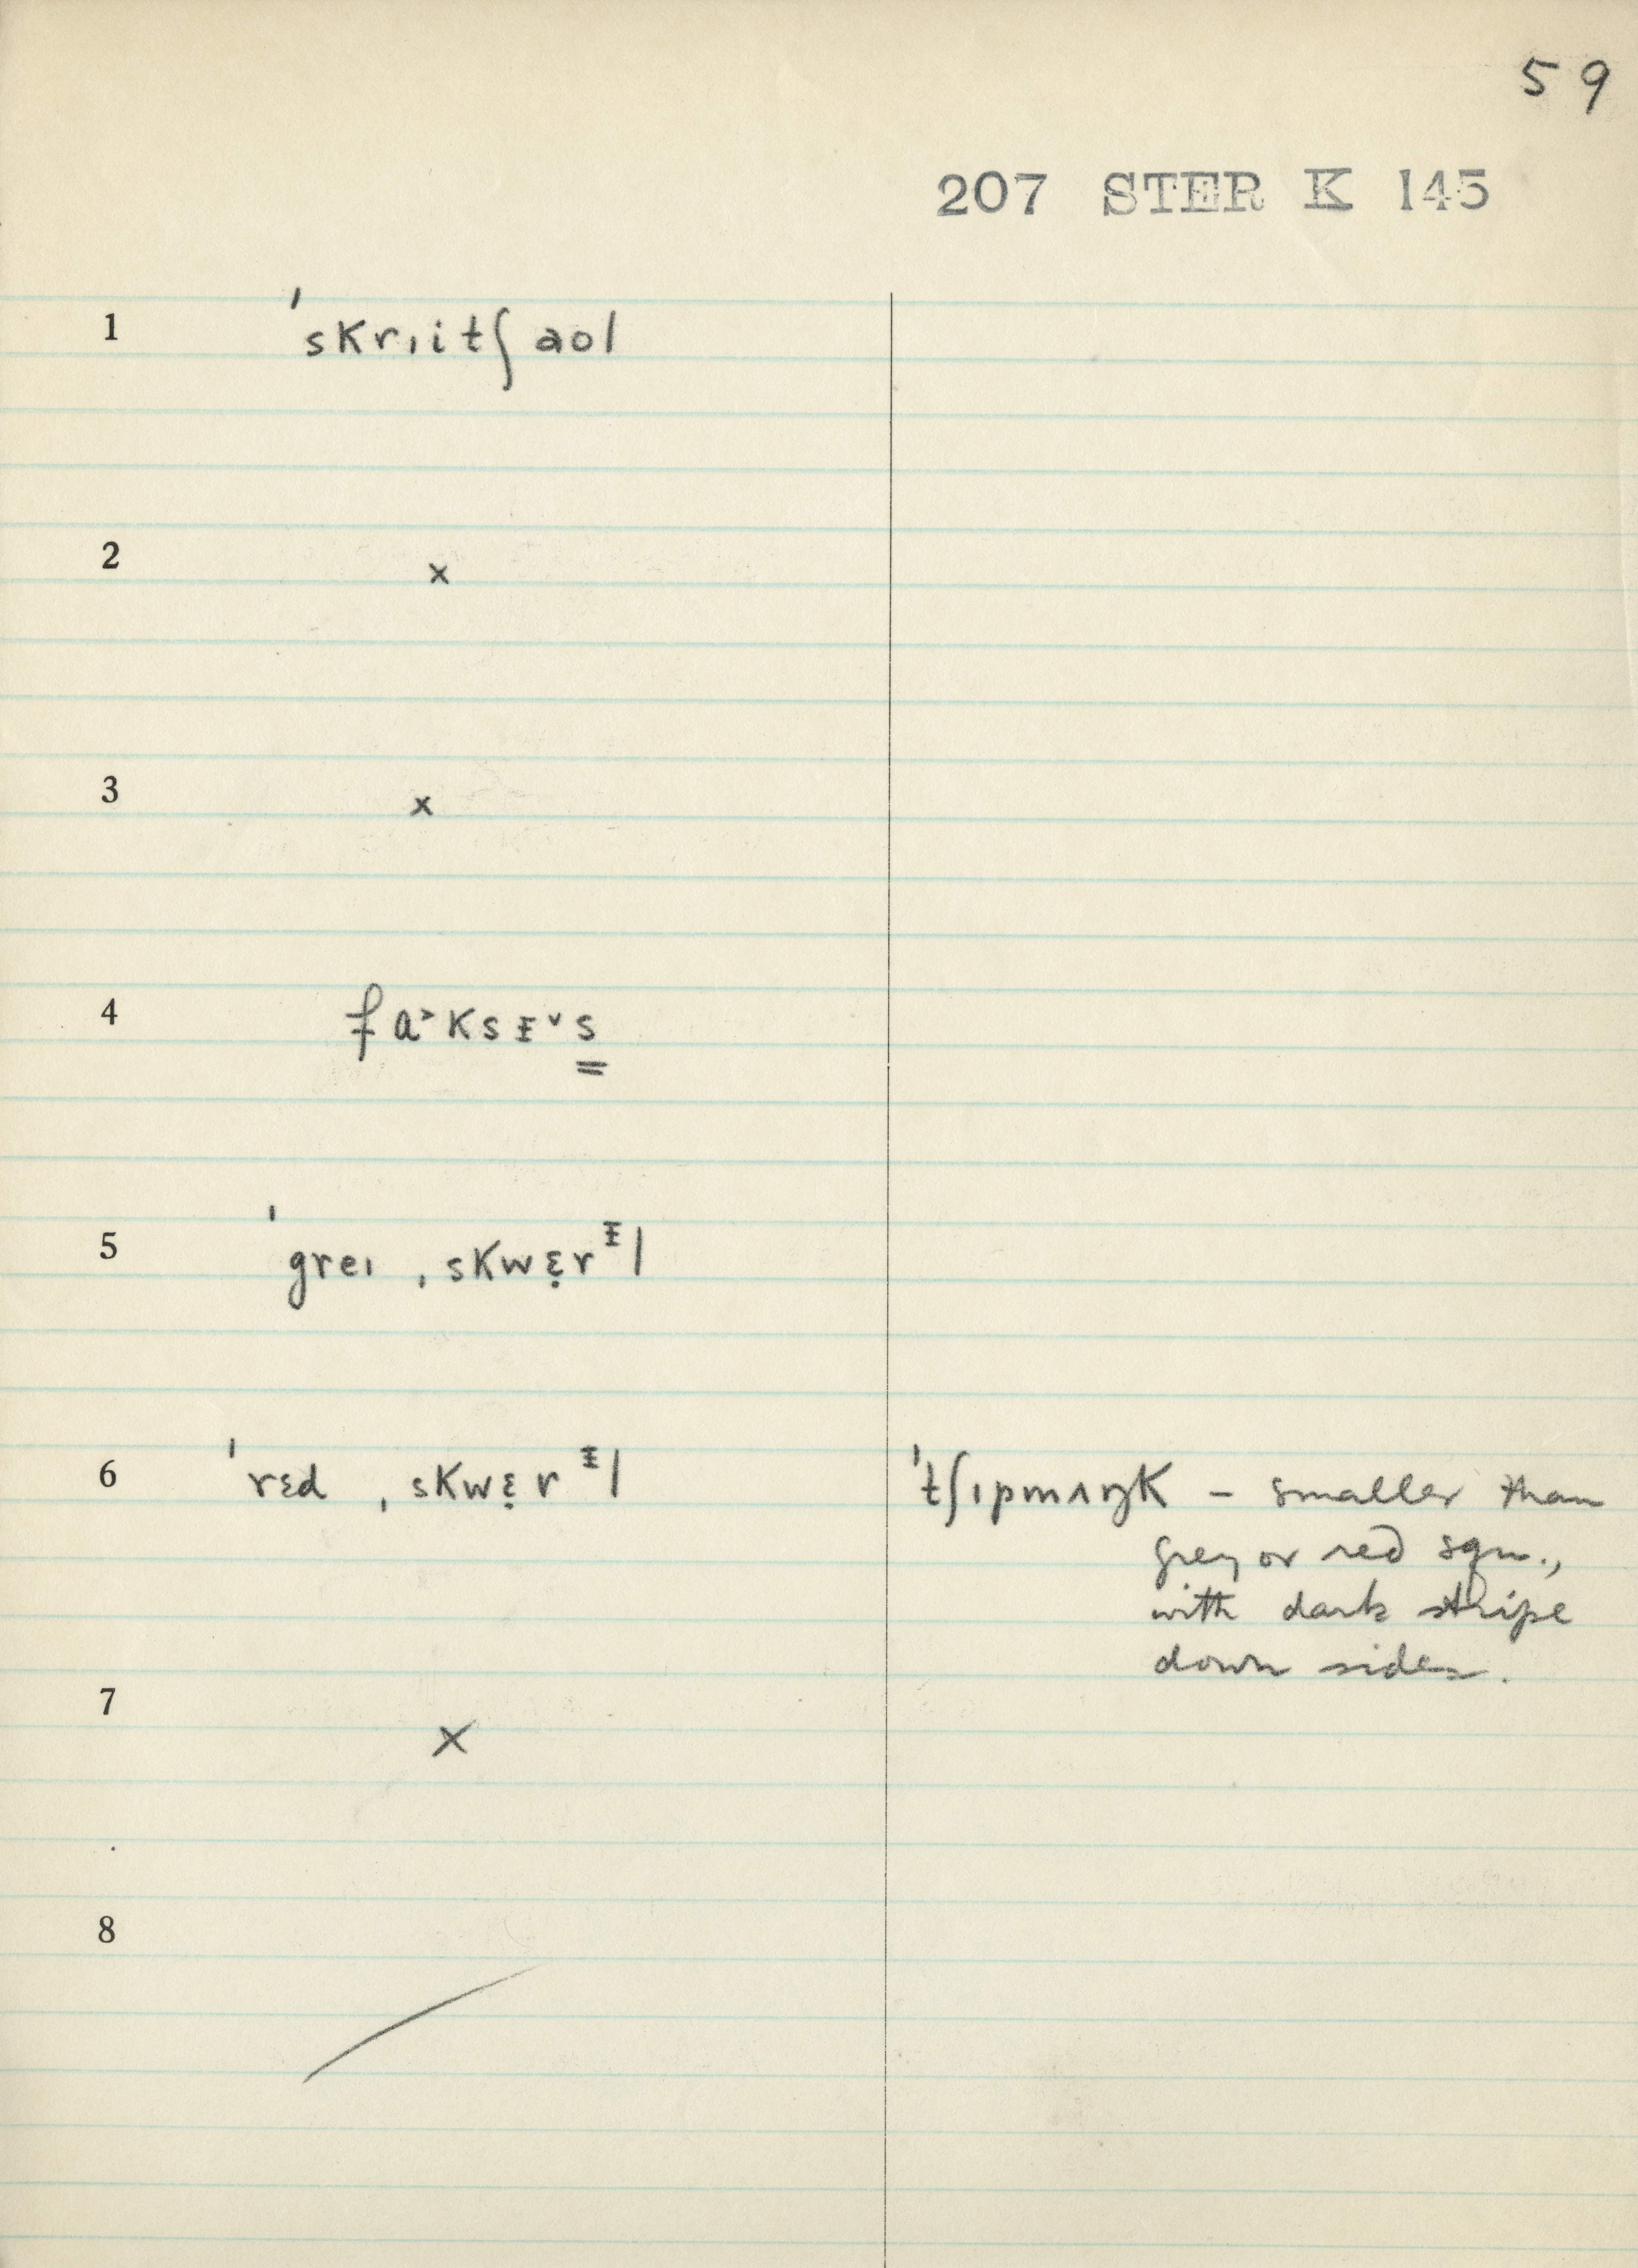 59
207 STER K 145
1 ˈskrɪitʃ aʊl
2 x
3 x
4 fɑ˃ksᵻ˅s
5 ˈgreɪ ˌskwɛ̣rᵻl
6 ˈrɛd ˌskwɛ̣rᵻl ˈtʃɪpmʌŋk – smaller than
grey or red squ.,
with dark stripe
down sides.
7 x
8